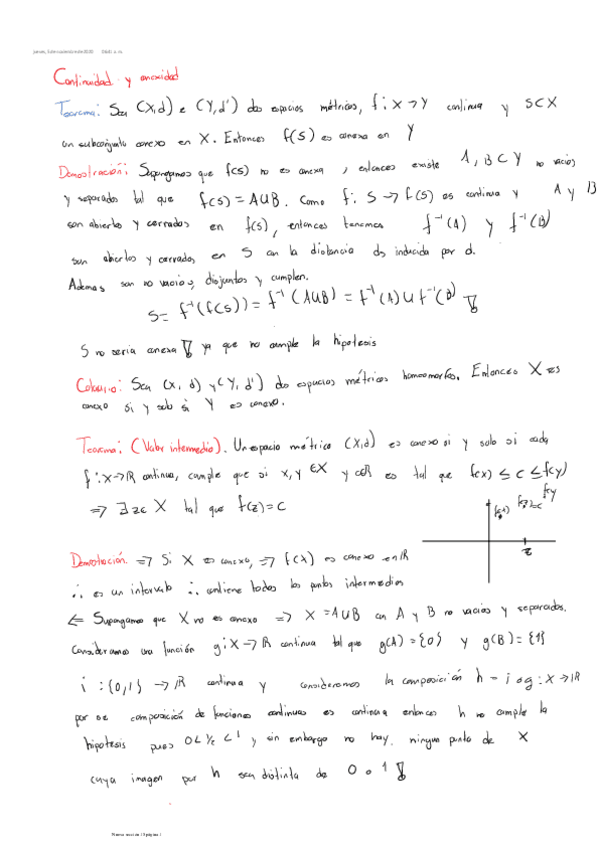 Continuidad y conexidad
Teorema: Sea (X,d) e (Y,d') dos espacios métricos, f: X → Y continua y S⊂X
un subconjunto conexo en X. Entonces f(S) es conexa en Y
Demostración: Supongamos que f(S) no es conexa, entonces existe A, B ⊂ Y no vacios
y separados tal que f(S) = A∪B. Como f: S → f(S) es continua y A y B
son abiertos y cerrados en f(S), entonces tenemos f⁻¹(A) y f⁻¹(B)
son abiertos y cerrados en S con la distancia ds inducida por d.
Ademas son no vacios, disjuntos y cumplen.
S = f⁻¹(f(S)) = f⁻¹(A∪B) = f⁻¹(A) ∪ f⁻¹(B)
S no seria conexa ya que no cumple la hipotesis
Sea (X, d) y (Y, d') dos espacios métricos homeomorfos. Entonces X es
conexo si y solo si Y es conexo.
Teorema: (Valor intermedio). Un espacio métrico (X,d) es conexo si y solo si cada
f: X→ℝ continua, cumple que si x, y ∈X y c∈ℝ es tal que f(x) ≤ c ≤ f(y)
=> ∃ z∈ X tal que f(z)=c
f(x) f(z)=c f(y)
z
=> Si X es conexo, => f(X) es conexo en ℝ
∴ es un intervalo ∴ contiene todos los puntos intermedios
<= Supongamos que X no es conexo => X = A∪B con A y B no vacios y separados.
Consideramos una función g: X → ℝ continua tal que g(A) = {0} y g(B) = {1}
i : {0,1} → ℝ continua y consideremos la composición h = i o g : X → ℝ
por se composición de funciones continuas es continua entonces h no cumple la
hipotesis pues 0 < ½ < 1 y sin embargo no hay ningun punto de X
cuya imagen por h sea distinta de 0 o 1